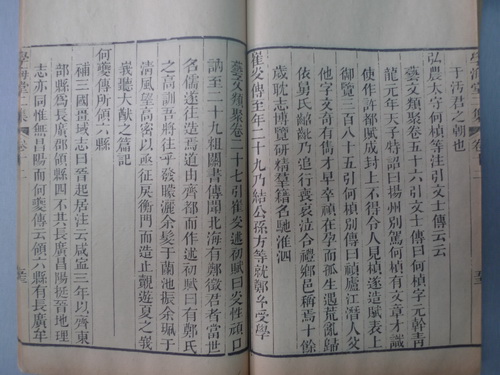 于汚君之朝也
弘農太守何楨等注引文士傳云云
藝文類聚卷五十六引文士傳曰何楨字元幹青
龍元年天子特詔曰揚州別駕何楨有文章才識
使作許都賦成封上不得令人見楨遂造賦表上
御覽三百八十五引何楨別傳曰楨廬江潛人父
他字文奇有儁才早卒楨在孕而孤生遇荒亂歸
依舅氏齠齔乃追行喪哀泣合禮鄉邑稱焉十餘
歲耽志博覽研精羣籍名馳淮泗
崔炎傳至年二十九乃結公孫方等就鄭玄受學
藝文類聚卷二十七引崔炎述初賦曰炎性頑口
訥至二十九粗關書傳聞北海有鄭徵君者當世
名儒遂往造焉道由齊都而作述初賦曰有鄭氏
之高訓吾將往乎發矇灑余髮于蘭池振余珮于
清風望高密以函征戾衡門而造止覿遊夏之峩
峩聽大猷之篇記
何夔傳所領六縣
補三國畺域志曰晉起居注云咸甯三年以齊東
部縣爲長廣郡領縣四不其長廣昌陽挺晉地理
志亦同惟無昌陽而何夔傳云領六縣有長廣牟
學海堂二集